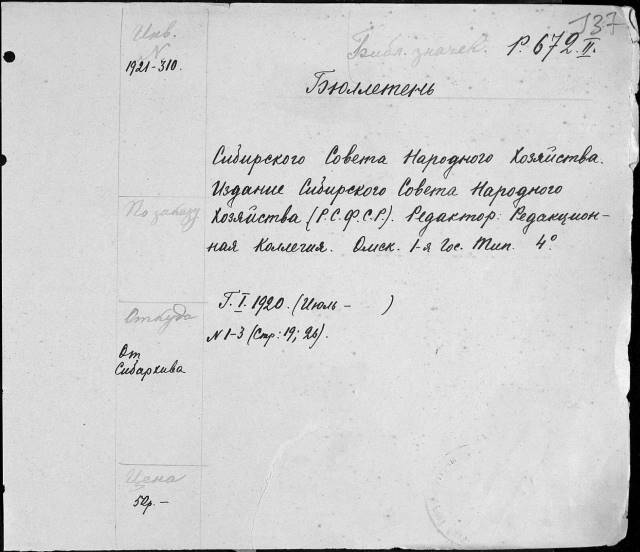 137
Инв. N
Библ. значек. Р. 672. II.
1921-310.
Бюллетень
Сибирского Совета Народного Хозяйства.
Издание Сибирского Совета Народного
По заказу
Хозяйства (Р.С.Ф.С.Р.). Редактор: Редакцион-
ная Коллегия. Омск. 1-я Гос. Тип. 4°.
Г. I. 1920. (Июль – )
Откуда
N 1-3 (Стр: 19; 26).
От
Сибархива
Цена
50р. –